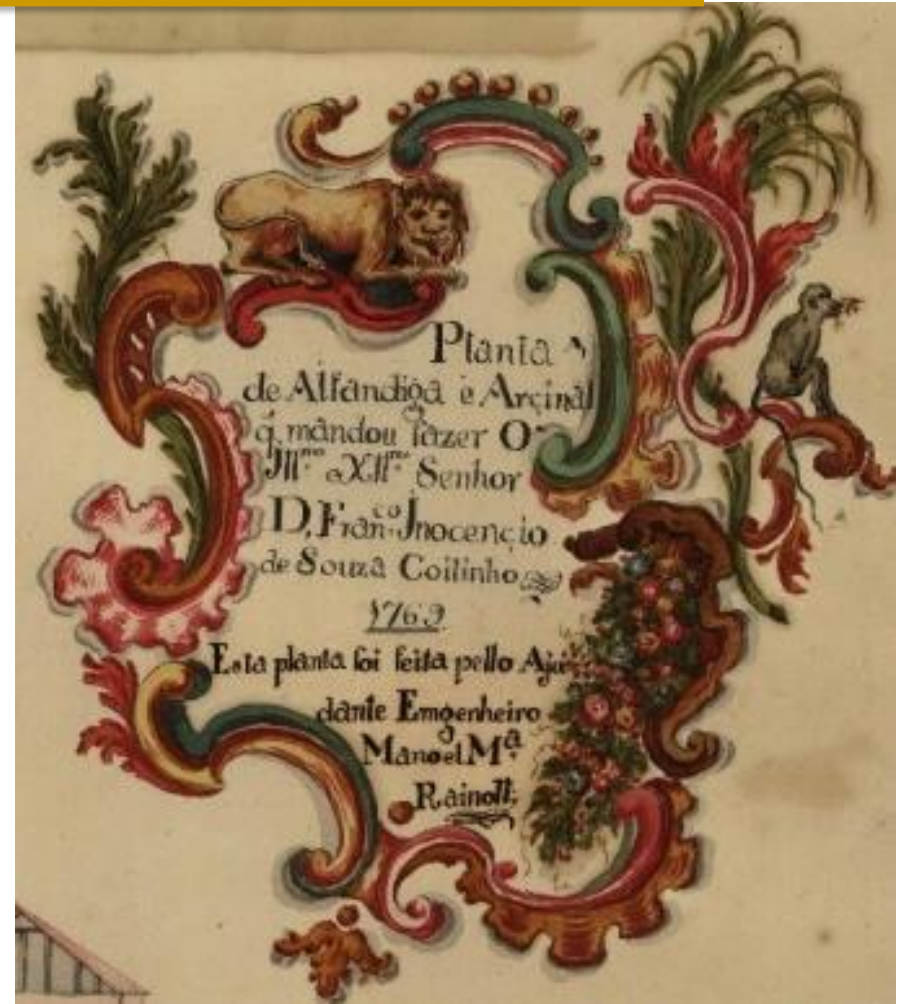 Planta
de Alfandiga e Arçinal
q̃ mandou fazer O
Ill.mo X Ill.mo Senhor
D, Fran.co Jnocençio
de Souza Coitinho
1769
Esta planta foi feita pello Aju
dante Emgenheiro
Manoel M.a